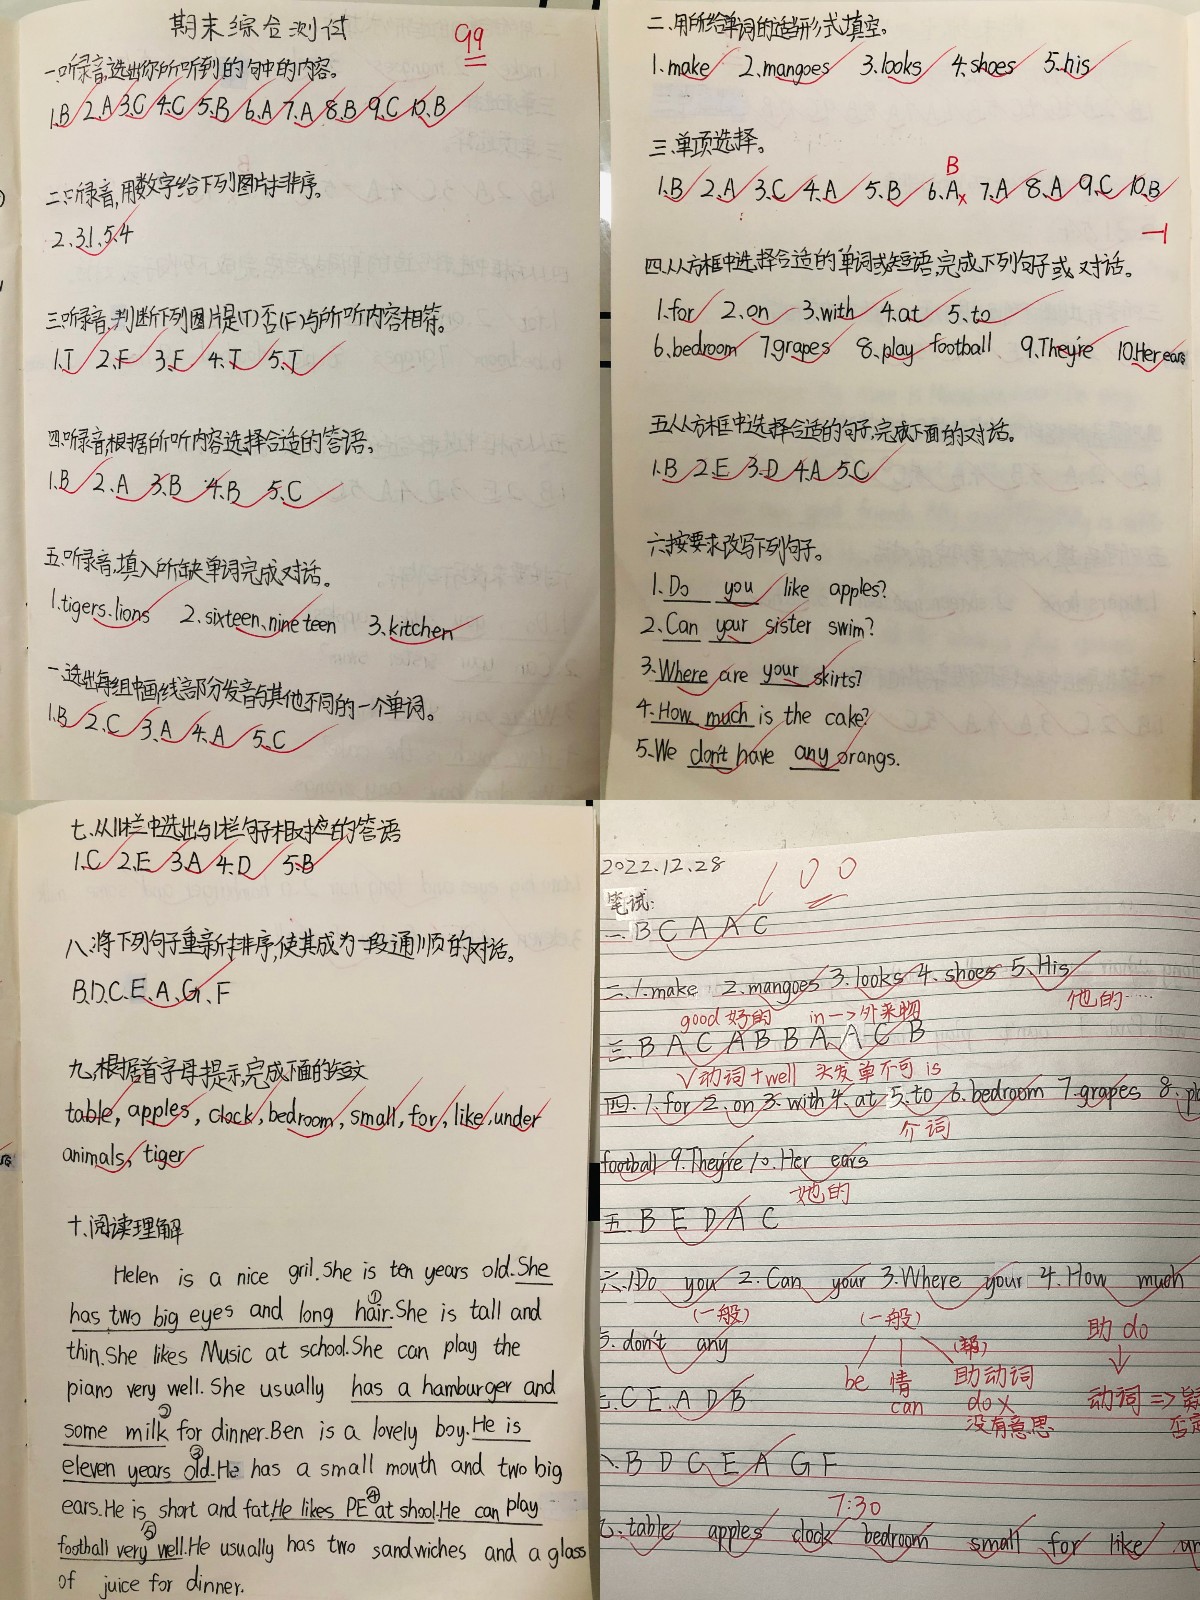 期末综合测试
99
一.听录音,选出你所听到的句中的内容。
1.B 2.A 3.C 4.C 5.B 6.A 7.A 8.B 9.C 10.B
二.听录音,用数字给下列图片排序。
2.3.1.5.4
三.听录音,判断下列图片是(T)否(F)与所听内容相符。
1.T 2.F 3.F 4.T 5.T
四.听录音,根据所听内容选择合适的答语。
1.B 2.A 3.B 4.B 5.C
五.听录音,填入所缺单词完成对话。
1.tigers.lions 2.sixteen,nineteen 3.kitchen
一.选出每组中画线部分发音与其他不同的一个单词。
1.B 2.C 3.A 4.A 5.C
二.用所给单词的适当形式填空。
1.make 2.mangoes 3.looks 4.shoes 5.his
三.单项选择。
B
1.B 2.A 3.C 4.A 5.B 6.A 7.A 8.A 9.C 10.B
-1
四.从方框中选择合适的单词或短语,完成下列句子或对话。
1.for 2.on 3.with 4.at 5.to
6.bedroom 7.grapes 8.play football 9.They're 10.Her ears
五.从方框中选择合适的句子,完成下面的对话。
1.B 2.E 3.D 4.A 5.C
六.按要求改写下列句子。
1.Do you like apples?
2.Can your sister swim?
3.Where are your skirts?
4.How much is the cake?
5.We don't have any orangs.
七.从II栏中选出与I栏句子相对应的答语
1.C 2.E 3.A 4.D 5.B
八.将下列句子重新排序,使其成为一段通顺的对话。
B.D.C.E.A.G.F
九.根据首字母提示,完成下面的短文
table, apples, clock, bedroom, small, for, like, under
animals, tiger
十.阅读理解
Helen is a nice gril.She is ten years old.She
has two big eyes and long hair.She is tall and
①
thin.She likes Music at school.She can play the
piano very well. She usually has a hamburger and
some milk for dinner.Ben is a lovely boy.He is
②
eleven years old.He has a small mouth and two big
③
ears.He is short and fat.He likes PE at shool.He can play
④
football very well.He usually has two sandwiches and a glass
⑤
of juice for dinner.
2022.12.28
100
笔试:
一.B C A A C
二.1.make 2.mangoes 3.looks 4.shoes 5.His
good 好的 in->外来物 他的……
三.B A C A B B A A C B
√动词+well 头发单不可 is
四.1.for 2.on 3.with 4.at 5.to 6.bedroom 7.grapes 8.
介词
football 9.They're 10.Her ears
她的
五.B E D A C
六.1.Do you 2.Can your 3.Where your 4.How much
(一般) (一般) 助 do
5.don't any
(帮)
be 情 助动词
can do× 动词=>
没有意思
C E A D B
B D C E A G F
7:30
table apples clock bedroom small for like